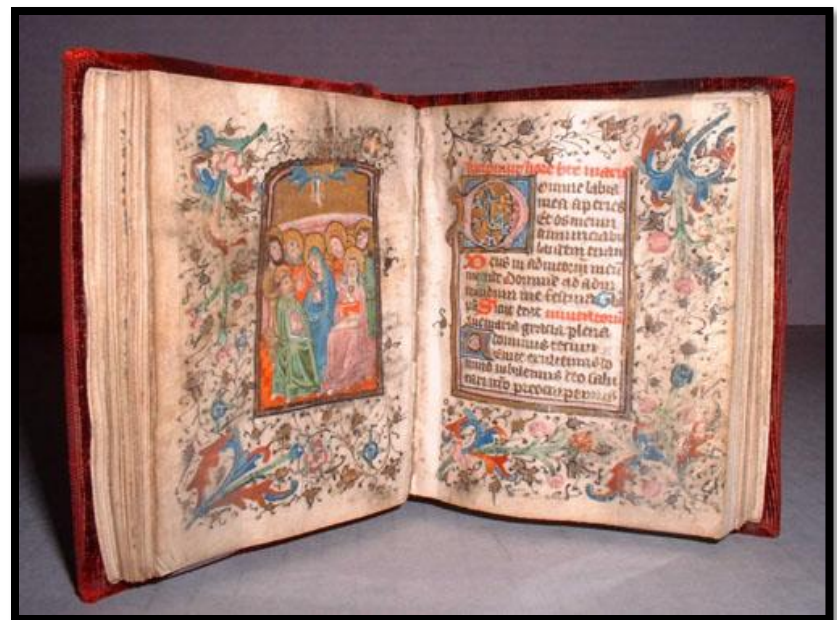 hore bte marie
Domine labia
mea aperies
Et os meum
annunciabit
laudem tuam
Deus in adiutoriū meū
intende Domine ad adiu
uandum me festina Gla
Sicut erat inuitatoriū
Aue maria gracia plena
dominus tecum
Uenite exultemus do
mino iubilemus deo salu
tari nr̄o preoccupemus